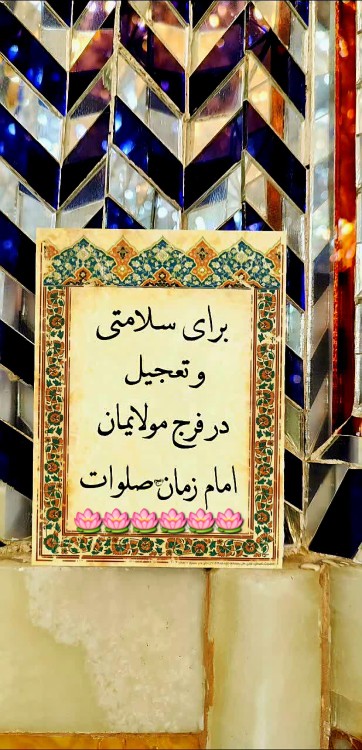 برای سلامتی
و تعجیل
در فرج مولایمان
امام زمان صلوات